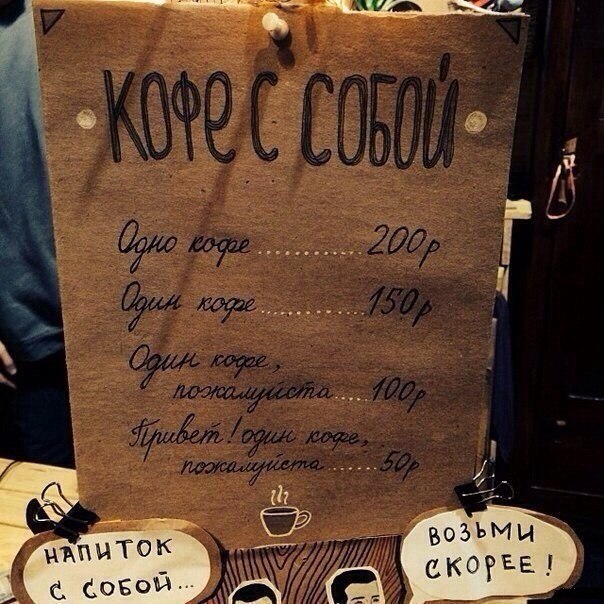 КОФЕ С СОБОЙ
Одно кофе .............. 200р
Один кофе .............. 150р
Один кофе,
пожалуйста ..... 100р
Привет! один кофе, ...
пожалуйста ...... 50р
НАПИТОК
С СОБОЙ...
ВОЗЬМИ
СКОРЕЕ!